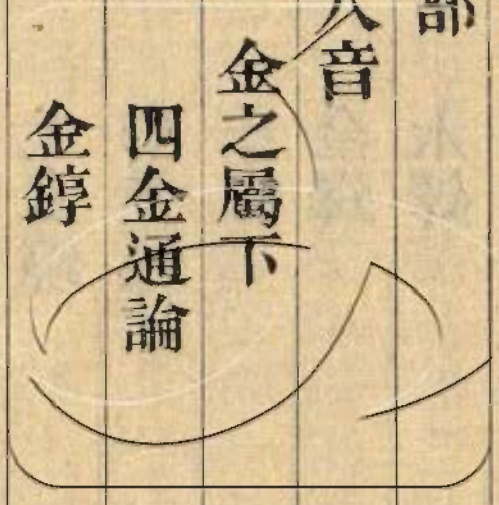 部
八音
金之屬下
四金通論
金錞